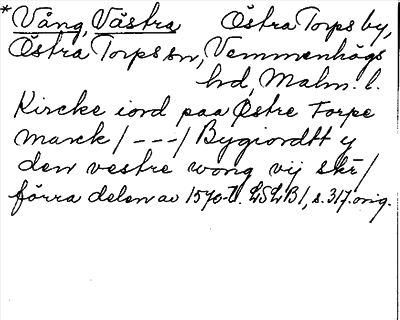 * Vång, Västra Östra Torps by,
Östra Torps sn, Vemmenhögs
hd, Malm. l.
Kircke iord paa Østre Torpe
marck / --- / Bygiordtt y
den vestre wong vij skr /
förra delen av 1570-t. LSLB 1, s. 317. orig.